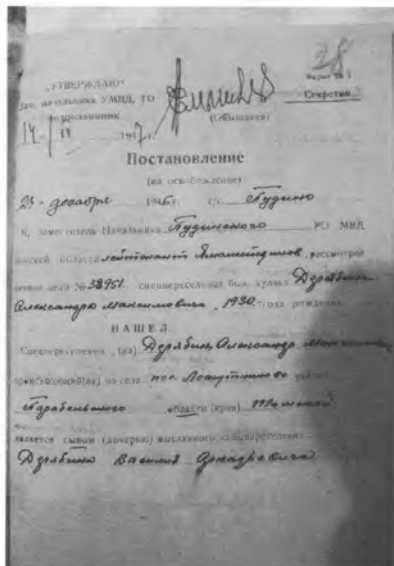 28
Форма № 1
„УТВЕРЖДАЮ"
Секретно
Зам. начальника УМВД, ТО
подполковник
14 - 11 1947 г.
Постановление
(на освобождение)
23 - декабря 1946 г. с/с. Пудино
Я, заместитель Начальника Пудинского РО МВД
Томской области лейтенант рассмотрев
личное дело № 38951 спецпереселенца быв. кулака Дерябина
Александра Максимовича, 1930 года рождения
НАШЕЛ
Спецпереселенец, (ка) Дерябин Александр
происходящий(ая) из села пос. района
Парабельского области (края) Томской
является сыном (дочерью) высланного спецпереселенца
Дерябина Василия